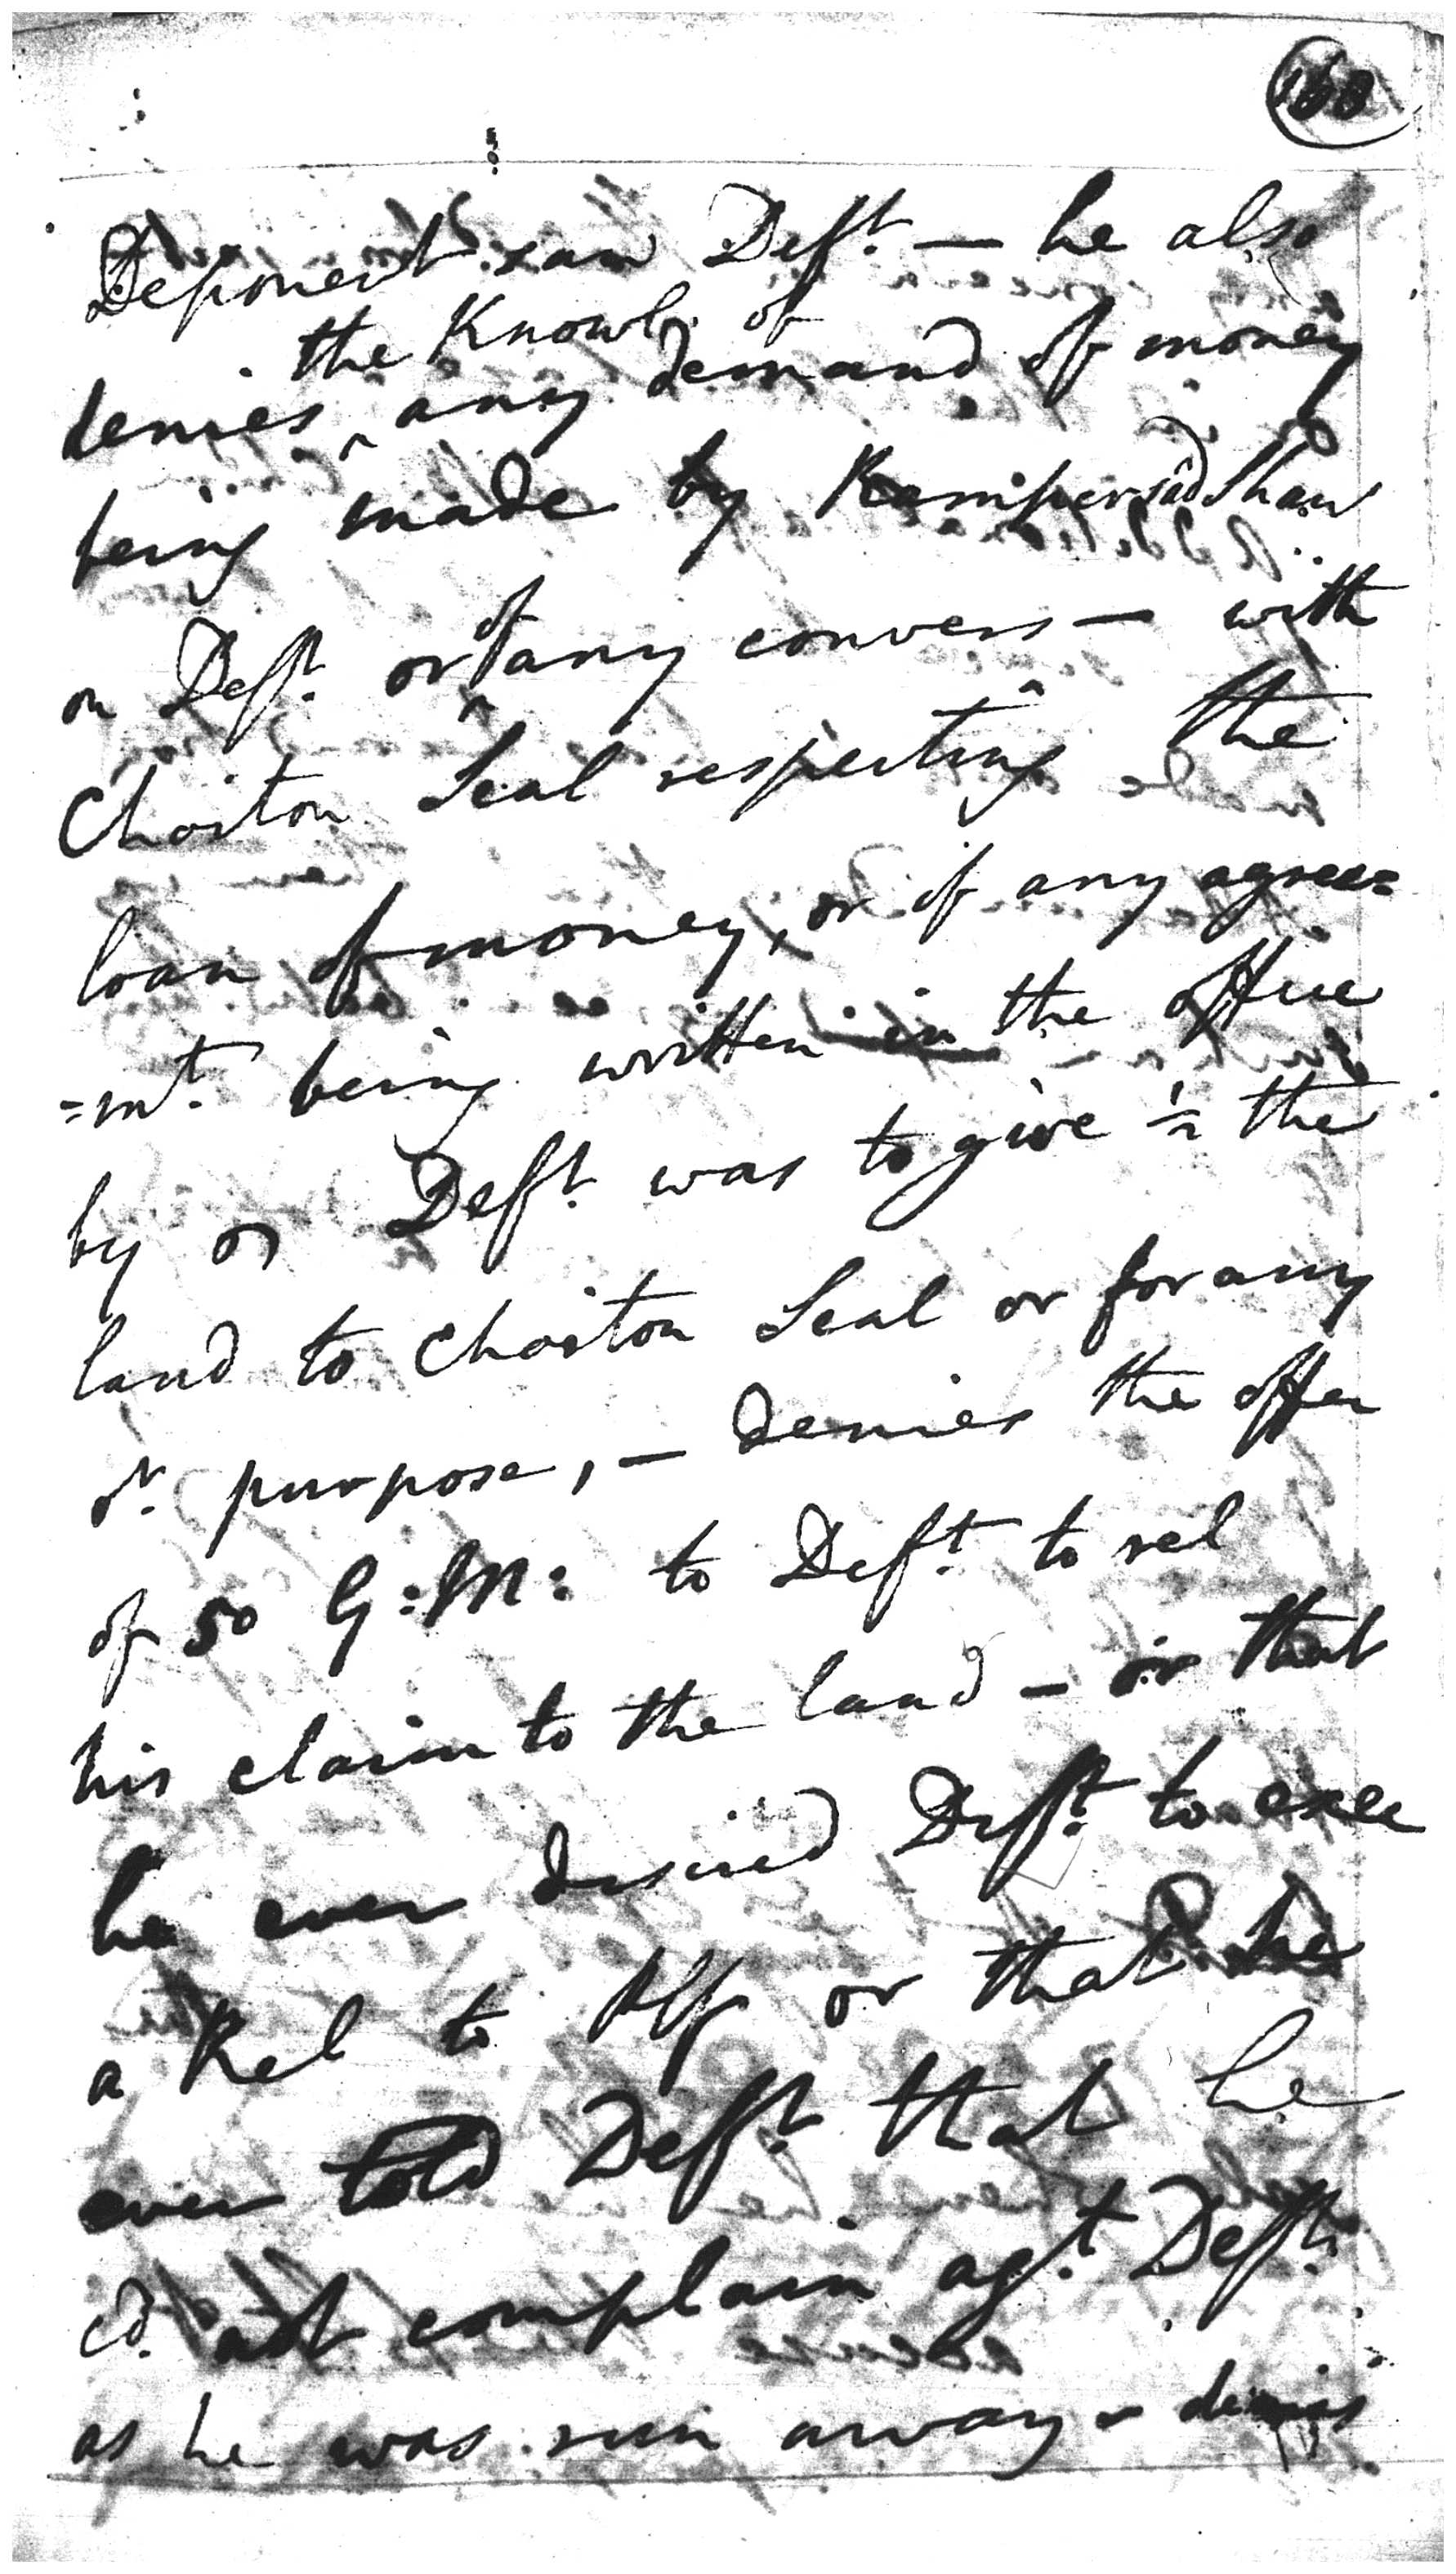 168
Deponent saw Deft. — he also
the Knowl. of
denies any demand of money
being made by Rampersad Shaw
on Deft. or of any convers — with
Choiton Seal respecting the
loan of money, or of any agree=
=mt. being written in the office
by or Deft. was to give ½ the
land to Choiton Seal or for any
or. purpose, — denies the offer
of 50 G: M: to Deft. to rel
his claim to the land — or that
he ever desired Deft. to exee
a Rel to Plf or that he
ever told Deft. that he
cd. not complain agt. Deft.
as he was run away — denies